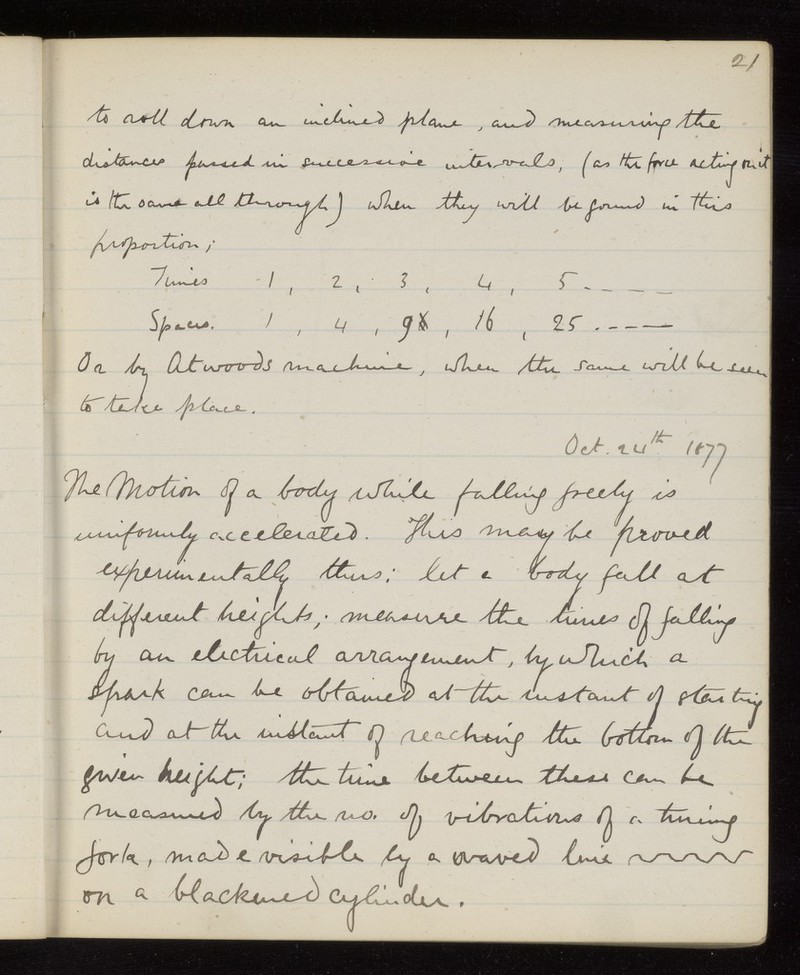 21
to roll down an inclined plane, and measuring the
distances passed in successive intervals, (as the force acting on it
is the same all through) when they will be found in this
proportion;
Times 1, 2, 3, 4, 5 - - - -
Spaces. 1, 4, 9, 16, 25 . - - -
Or by Atwoods machine, when the same will be seen
to take place.
Oct. 24th 1877
The Motion of a body while falling freely is
uniformly accelerated. This may be proved
experimentally thus: let a body fall at
different heights; measure the times of falling
by an electrical arrangement, by which a
spark can be obtained at the instant of starting
and at the instant of reaching the bottom of the
given height; the time between these can be
measured by the no. of vibrations of a tuning
fork, made visible by a waved line
on a blackened cylinder.